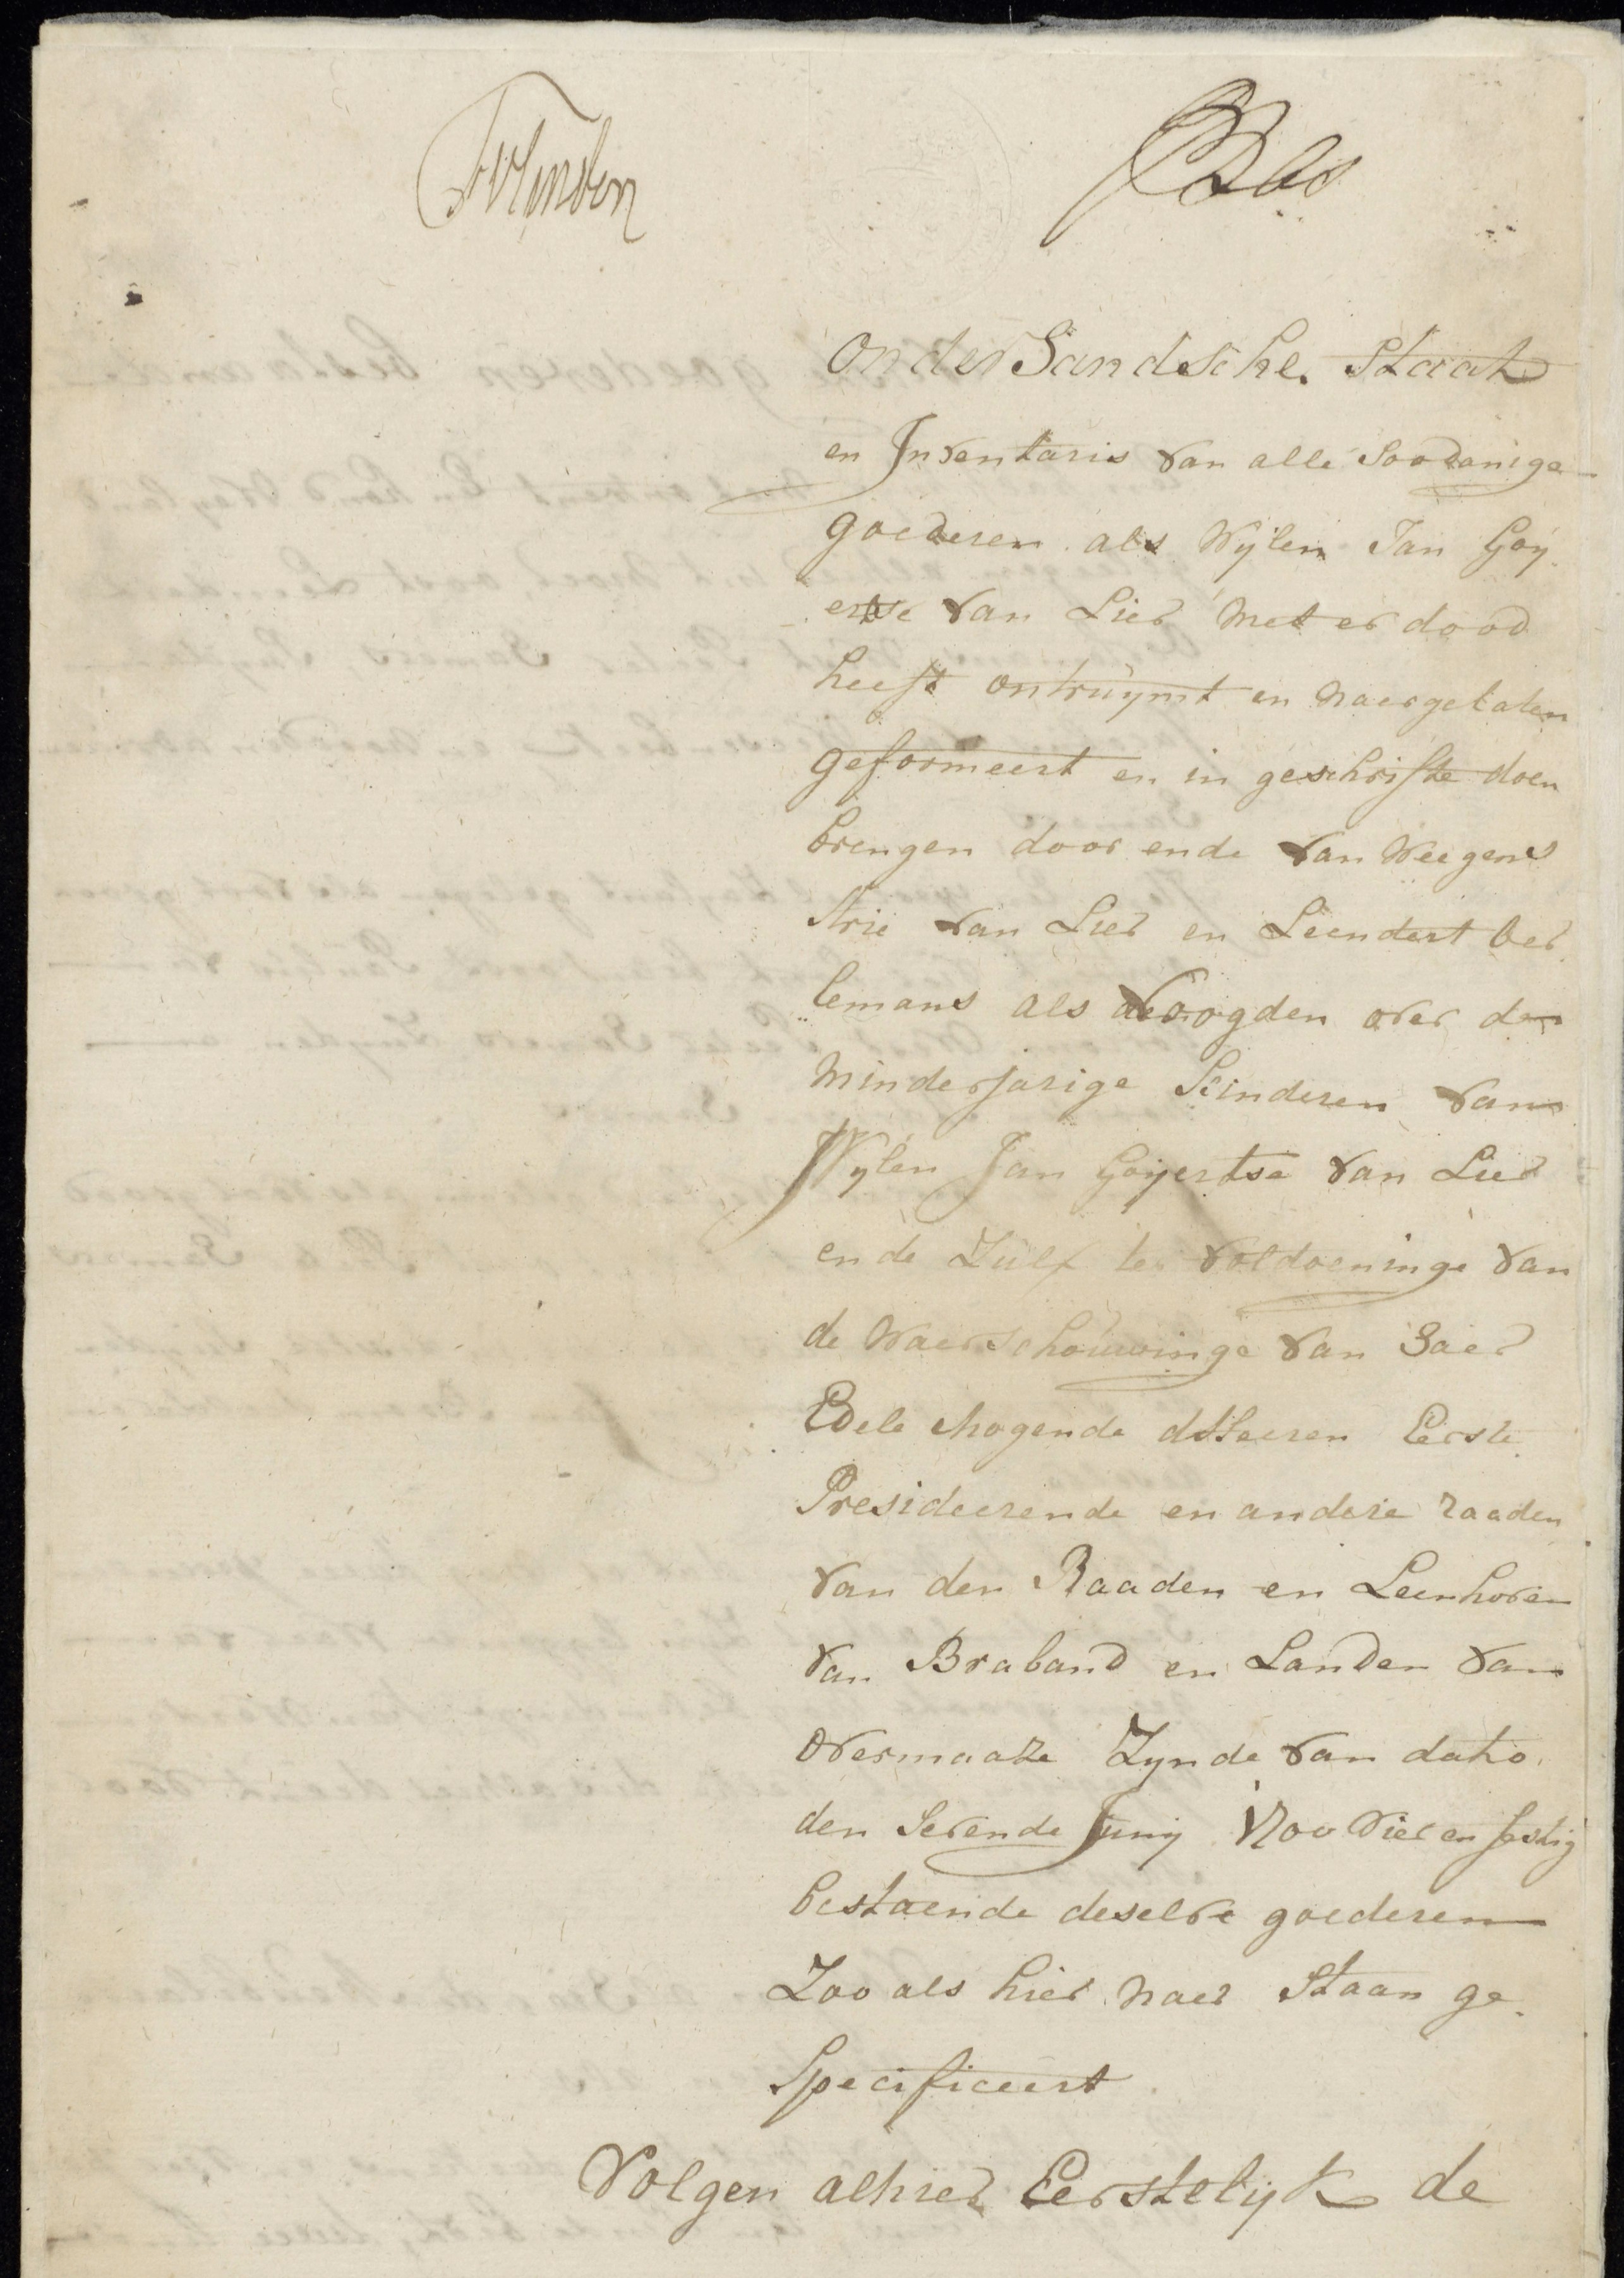 OnderSandsche Staat
en Inventaris van alle Soodanige
goederen als Wijlen Jan Goij
ertse van Lier met er dood
heeft ontruijmt en naergelaten
geformeert en in geschrifte doen
brengen door ende van Weegens
Arie van Lier en Leendert Ber
lemans als voogden over de
minderjarige Kinderen van
Wijlen Jan Goijertse van Lier
ende Zulx ter voldoeninge van
de Waerschouwinge van Haer
Edele Mogende d'Heeren Eerste
Presideerende en andere raaden
van den Raaden en Leenhoven
van Braband en Landen van
Overmaaze Zynde van dato
den Sevende Junij 1700 Vier en sestig
bestaende deselve goederen
Zoo als hier naer Staan ge
Specificeert
Volgen alhier Eerstelijk de